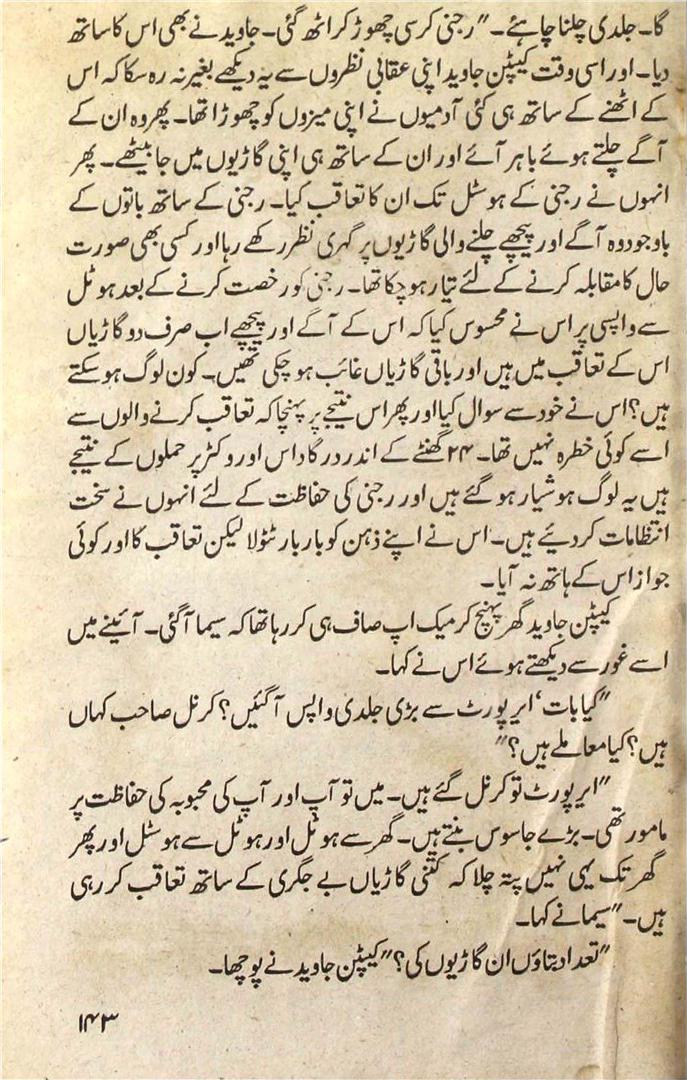 گا۔ جلدی چلنا چاہئے۔" رجنی کرسی چھوڑ کر اٹھ گئی۔ جاوید نے بھی اس کا ساتھ
دیا۔ اور اسی وقت کیپٹن جاوید اپنی عقابی نظروں سے یہ دیکھے بغیر نہ رہ سکا کہ اس
کے اٹھنے کے ساتھ ہی کئی آدمیوں نے اپنی میزوں کو چھوڑا تھا۔ پھر وہ ان کے
آگے چلتے ہوئے باہر آئے اور ان کے ساتھ ہی اپنی گاڑیوں میں جا بیٹھے۔ پھر
انہوں نے رجنی کے ہوسٹل تک ان کا تعاقب کیا۔ رجنی کے ساتھ باتوں کے
باوجود وہ آگے اور پیچھے چلنے والی گاڑیوں پر گہری نظر رکھے رہا اور کسی بھی صورت
حال کا مقابلہ کرنے کے لئے تیار ہو چکا تھا۔ رجنی کو رخصت کرنے کے بعد ہوٹل
سے واپسی پر اس نے محسوس کیا کہ اس کے آگے اور پیچھے اب صرف دو گاڑیاں
اس کے تعاقب میں ہیں اور باقی گاڑیاں غائب ہو چکی تھیں۔ کون لوگ ہو سکتے
ہیں؟ اس نے خود سے سوال کیا اور پھر اس نتیجے پر پہنچا کہ تعاقب کرنے والوں سے
اسے کوئی خطرہ نہیں تھا۔ ۲۴ گھنٹے کے اندر درگا داس اور وکٹر پر حملوں کے نتیجے
ہیں یہ لوگ ہوشیار ہو گئے ہیں اور رجنی کی حفاظت کے لئے انہوں نے سخت
انتظامات کر دیئے ہیں۔ اس نے اپنے ذہن کو بار بار ٹٹولا لیکن تعاقب کا اور کوئی
جواز اس کے ہاتھ نہ آیا۔
کیپٹن جاوید گھر پہنچ کر میک اپ صاف ہی کر رہا تھا کہ سیما آگئی۔ آئینے میں
اسے غور سے دیکھتے ہوئے اس نے کہا۔
"کیا بات، ایرپورٹ سے بڑی جلدی واپس آگئیں؟ کرنل صاحب کہاں
ہیں؟ کیا معاملے ہیں؟"
"ایرپورٹ تو کرنل گئے ہیں۔ میں تو آپ اور آپ کی محبوبہ کی حفاظت پر
مامور تھی۔ بڑے جاسوس بنتے ہیں۔ گھر سے ہوٹل اور ہوٹل سے ہوسٹل اور پھر
گھر تک یہی نہیں پتہ چلا کہ کتنی گاڑیاں بے جگری کے ساتھ تعاقب کر رہی
ہیں۔" سیما نے کہا۔
"تعداد بتاؤں ان گاڑیوں کی؟" کیپٹن جاوید نے پوچھا۔
۱۴۳